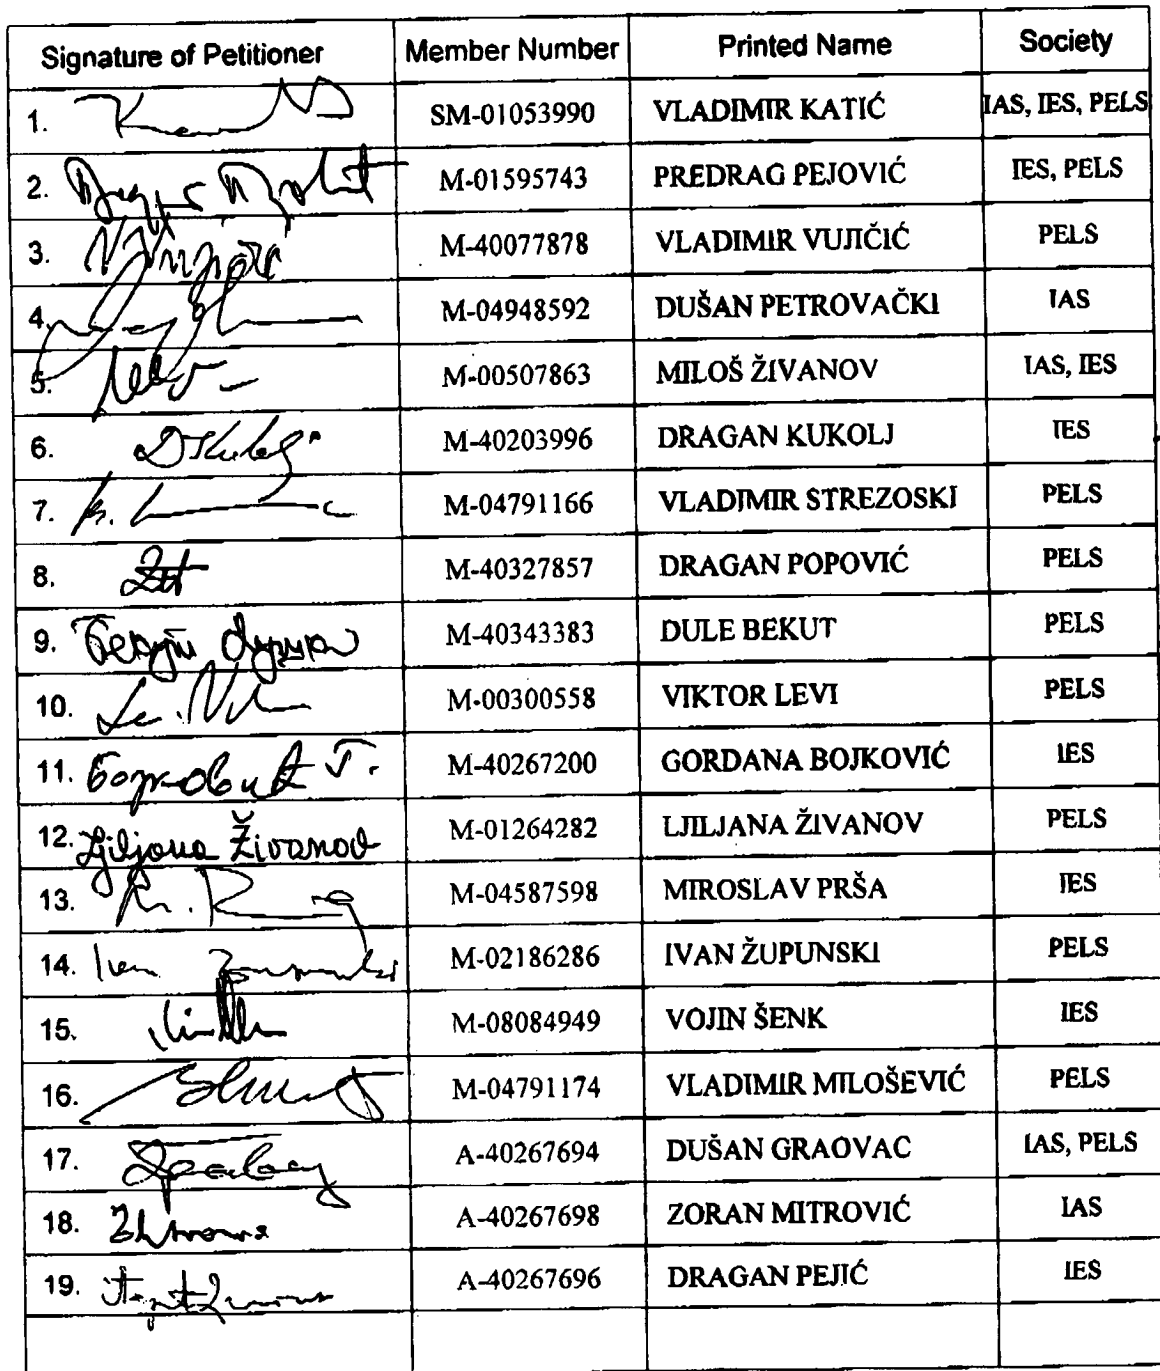 Signature of Petitioner Member Number Printed Name Society
1. SM-01053990 VLADIMIR KATIĆ IAS, IES, PELS
2. M-01595743 PREDRAG PEJOVIĆ IES, PELS
3. M-40077878 VLADIMIR VUJIČIĆ PELS
4. M-04948592 DUŠAN PETROVAČKI IAS
5. M-00507863 MILOŠ ŽIVANOV IAS, IES
6. DKukolj M-40203996 DRAGAN KUKOLJ IES
7. M-04791166 VLADIMIR STREZOSKI PELS
8. M-40327857 DRAGAN POPOVIĆ PELS
9. M-40343383 DULE BEKUT PELS
10. M-00300558 VIKTOR LEVI PELS
11. M-40267200 GORDANA BOJKOVIĆ IES
12. Ljiljana Živanov M-01264282 LJILJANA ŽIVANOV PELS
13. M-04587598 MIROSLAV PRŠA IES
14. M-02186286 IVAN ŽUPUNSKI PELS
15. M-08084949 VOJIN ŠENK IES
16. M-04791174 VLADIMIR MILOŠEVIĆ PELS
17. A-40267694 DUŠAN GRAOVAC IAS, PELS
18. A-40267698 ZORAN MITROVIĆ IAS
19. A-40267696 DRAGAN PEJIĆ IES